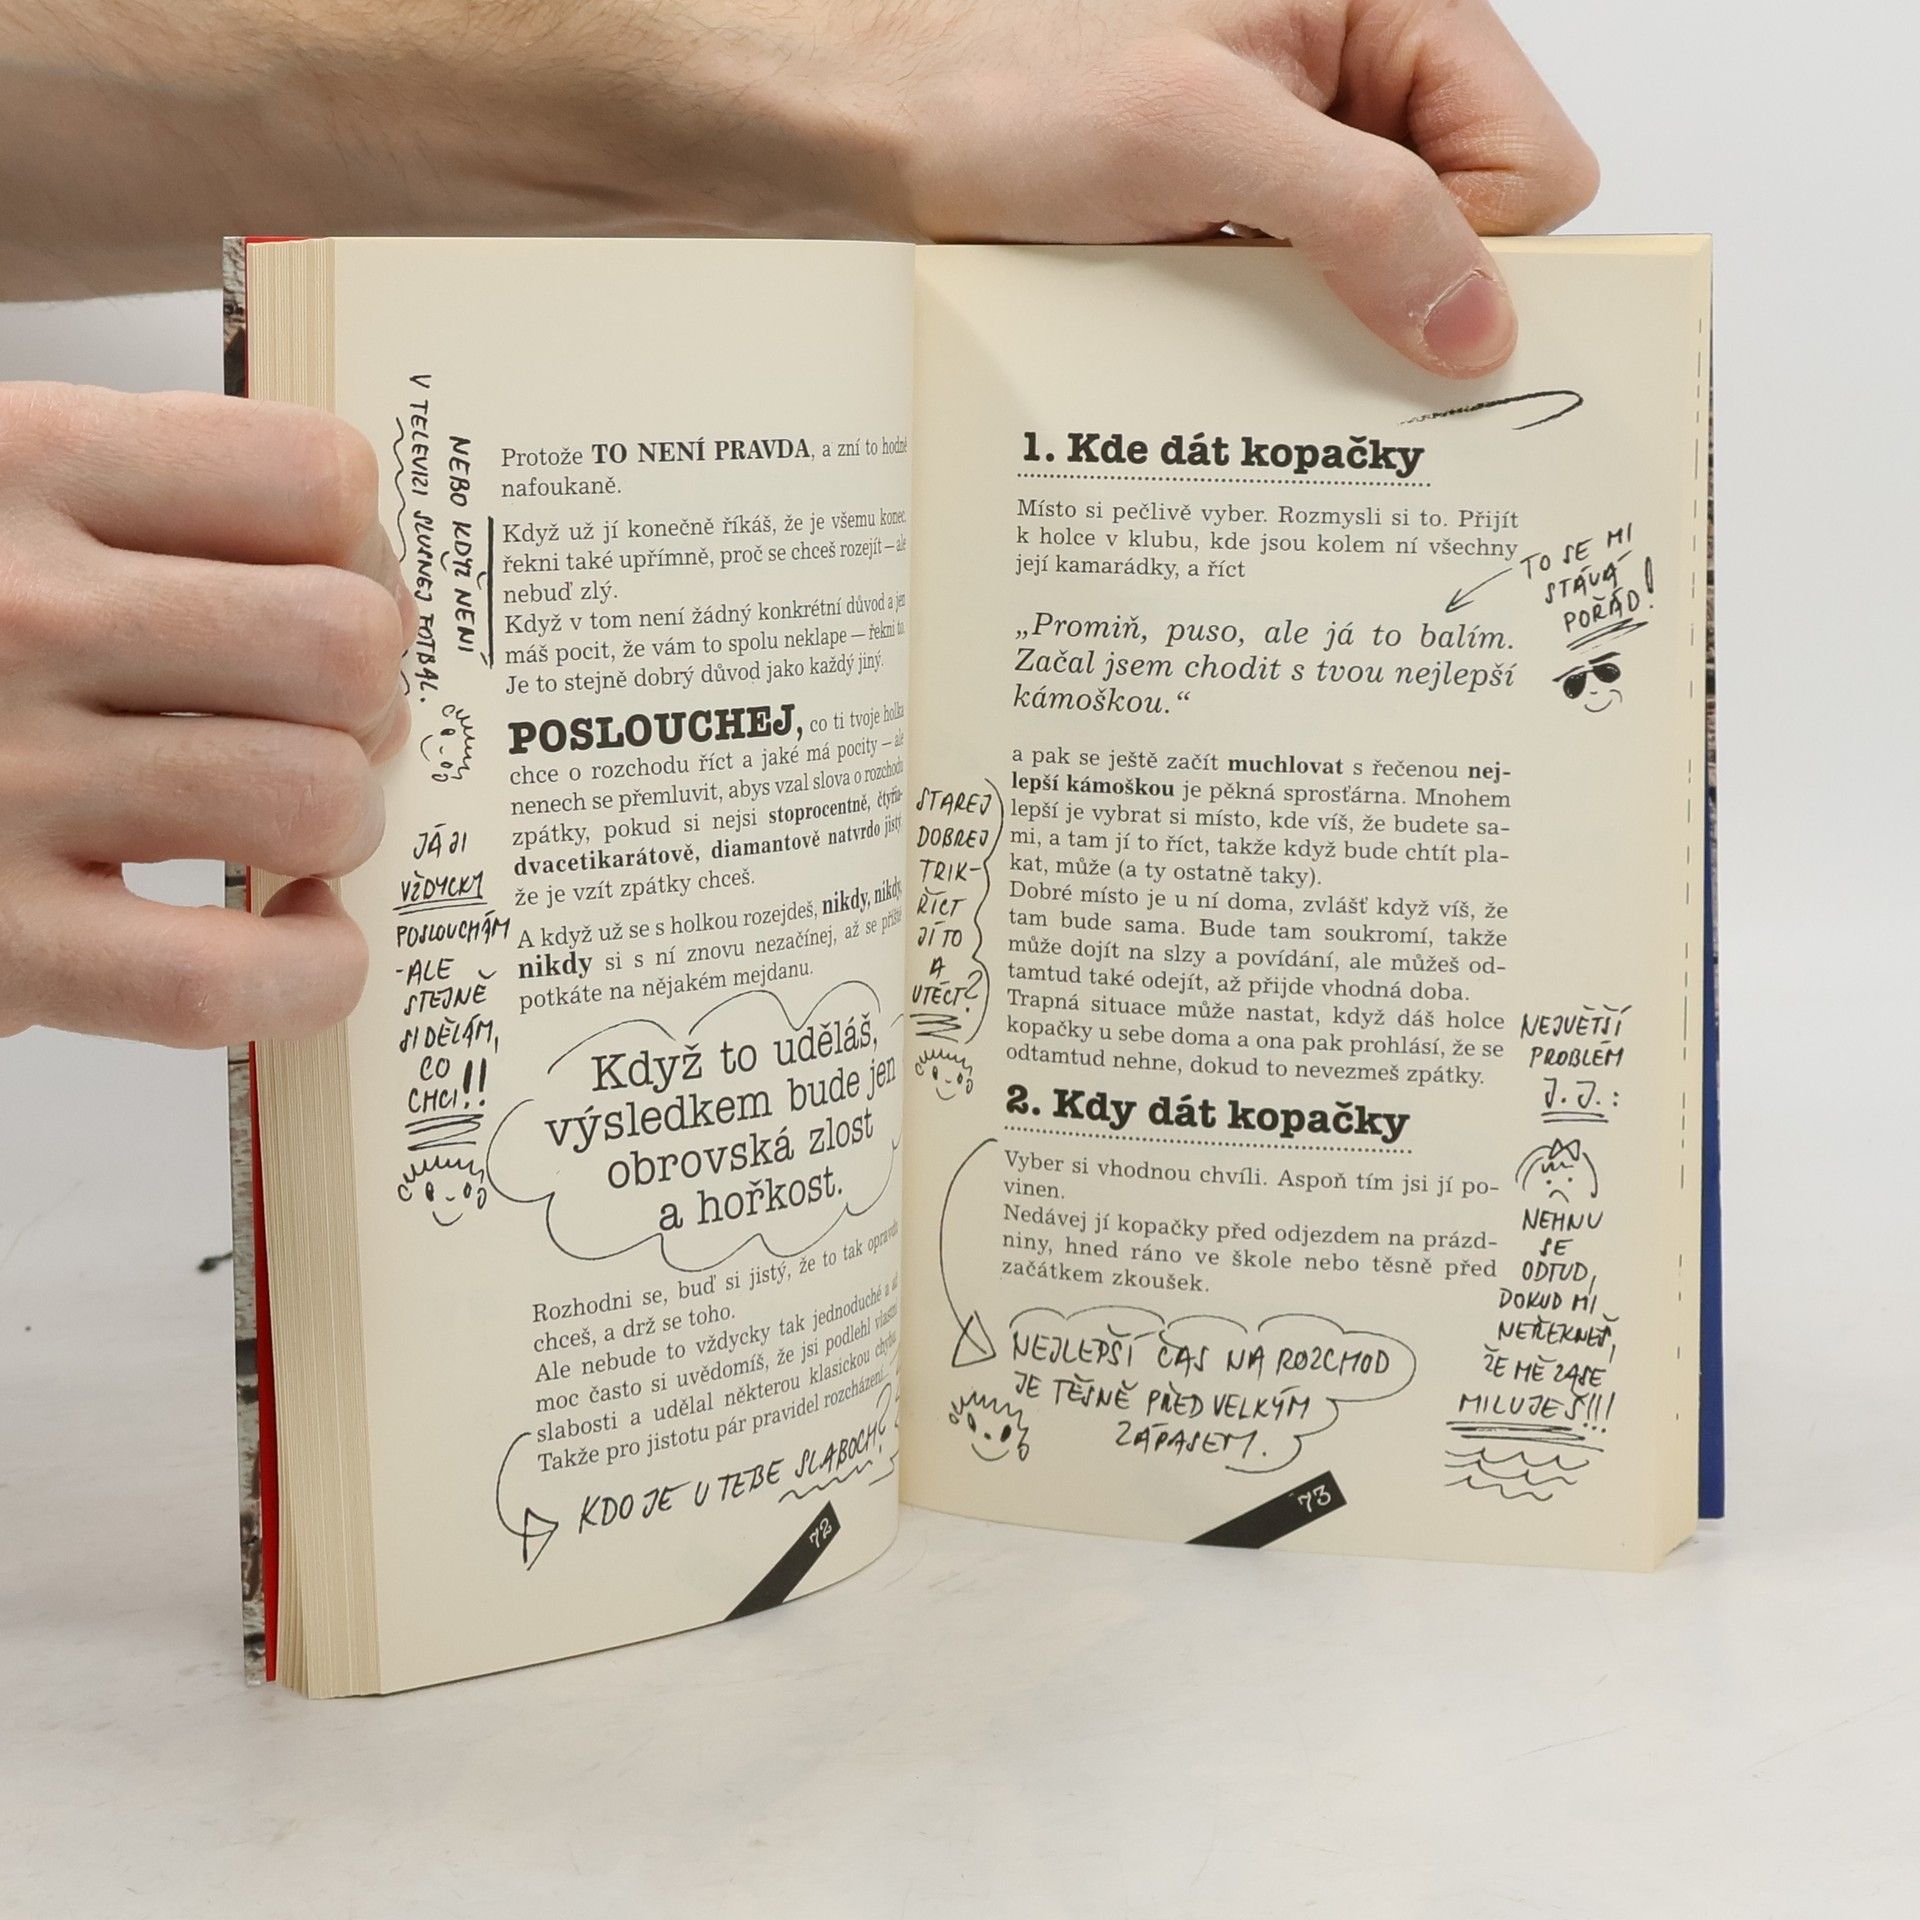 V TELEVIZI SLUŠNEJ FOTBAL.
NEBO KDYŽ NENÍ
Protože TO NENÍ PRAVDA, a zní to hodně
nafoukaně.
Když už jí konečně říkáš, že je všemu konec,
řekni také upřímně, proč se chceš rozejít – ale
nebuď zlý.
Když v tom není žádný konkrétní důvod a jen
máš pocit, že vám to spolu neklape – řekni to.
Je to stejně dobrý důvod jako každý jiný.
POSLOUCHEJ, co ti tvoje holka
chce o rozchodu říct a jaké má pocity – ale
nenech se přemluvit, abys vzal slova o rozchodu
zpátky, pokud si nejsi stoprocentně, čtyřia-
dvacetikarátově, diamantově natvrdo jistý,
že je vzít zpátky chceš.
A když už se s holkou rozejdeš, nikdy, nikdy,
nikdy si s ní znovu nezačínej, až se příště
potkáte na nějakém mejdanu.
JÁ JI
VŽDYCKY
POSLOUCHÁM
-ALE
STEJNĚ
SI DĚLÁM,
CO
CHCI!!
Když to uděláš,
výsledkem bude jen
obrovská zlost
a hořkost.
Rozhodni se, buď si jistý, že to tak opravdu
chceš, a drž se toho.
Ale nebude to vždycky tak jednoduché a až
moc často si uvědomíš, že jsi podlehl vlastní
slabosti a udělal některou klasickou chybu.
Takže pro jistotu pár pravidel rozcházení...
KDO JE U TEBE SLABOCH?
72
1. Kde dát kopačky
Místo si pečlivě vyber. Rozmysli si to. Přijít
k holce v klubu, kde jsou kolem ní všechny
její kamarádky, a říct
TO SE MI
STÁVÁ
POŘÁD!
„Promiň, puso, ale já to balím.
Začal jsem chodit s tvou nejlepší
kámoškou.“
a pak se ještě začít muchlovat s řečenou nej-
lepší kámoškou je pěkná sprosťárna. Mnohem
lepší je vybrat si místo, kde víš, že budete sa-
mi, a tam jí to říct, takže když bude chtít pla-
kat, může (a ty ostatně taky).
Dobré místo je u ní doma, zvlášť když víš, že
tam bude sama. Bude tam soukromí, takže
může dojít na slzy a povídání, ale můžeš od-
tamtud také odejít, až přijde vhodná doba.
Trapná situace může nastat, když dáš holce
kopačky u sebe doma a ona pak prohlásí, že se
odtamtud nehne, dokud to nevezmeš zpátky.
STAREJ
DOBREJ
TRIK-
ŘÍCT
JÍ TO
A
UTÉCT?
NEJVĚTŠÍ
PROBLÉM
J. J.:
NEHNU
SE
ODTUD,
DOKUD MI
NEŘEKNEŠ,
ŽE MĚ ZASE
MILUJEŠ!!!
2. Kdy dát kopačky
Vyber si vhodnou chvíli. Aspoň tím jsi jí po-
vinen.
Nedávej jí kopačky před odjezdem na prázd-
niny, hned ráno ve škole nebo těsně před
začátkem zkoušek.
NEJLEPŠÍ ČAS NA ROZCHOD
JE TĚSNĚ PŘED VELKÝM
ZÁPASEM.
73